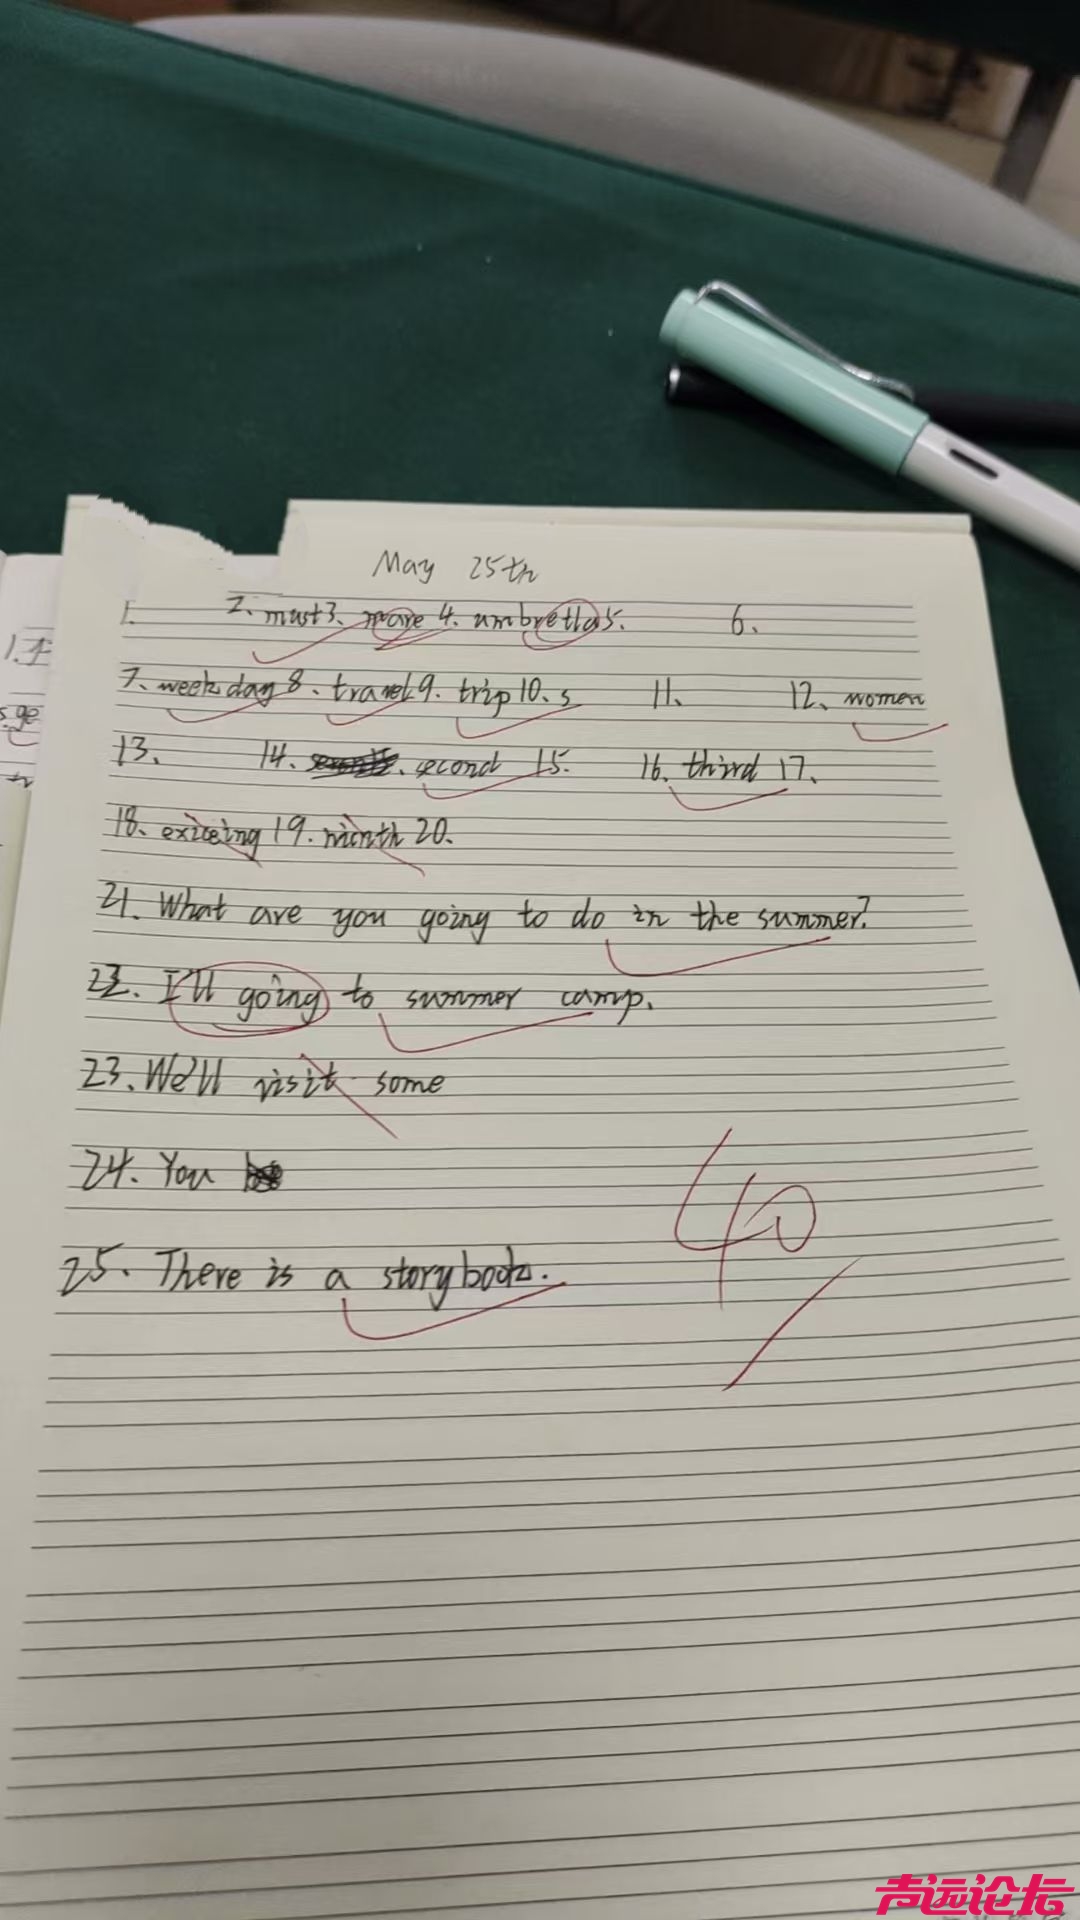 May 25th
1. 2. must 3. more 4. umbretla 5. 6.
7. weekday 8. travel 9. trip 10. s 11. 12. women
13. 14. second 15. 16. third 17.
18. exiceing 19. minth 20.
21. What are you going to do in the summer?
22. I'll going to summer camp.
23. We'll visit some
24. You
25. There is a storybook.
40
声远论坛